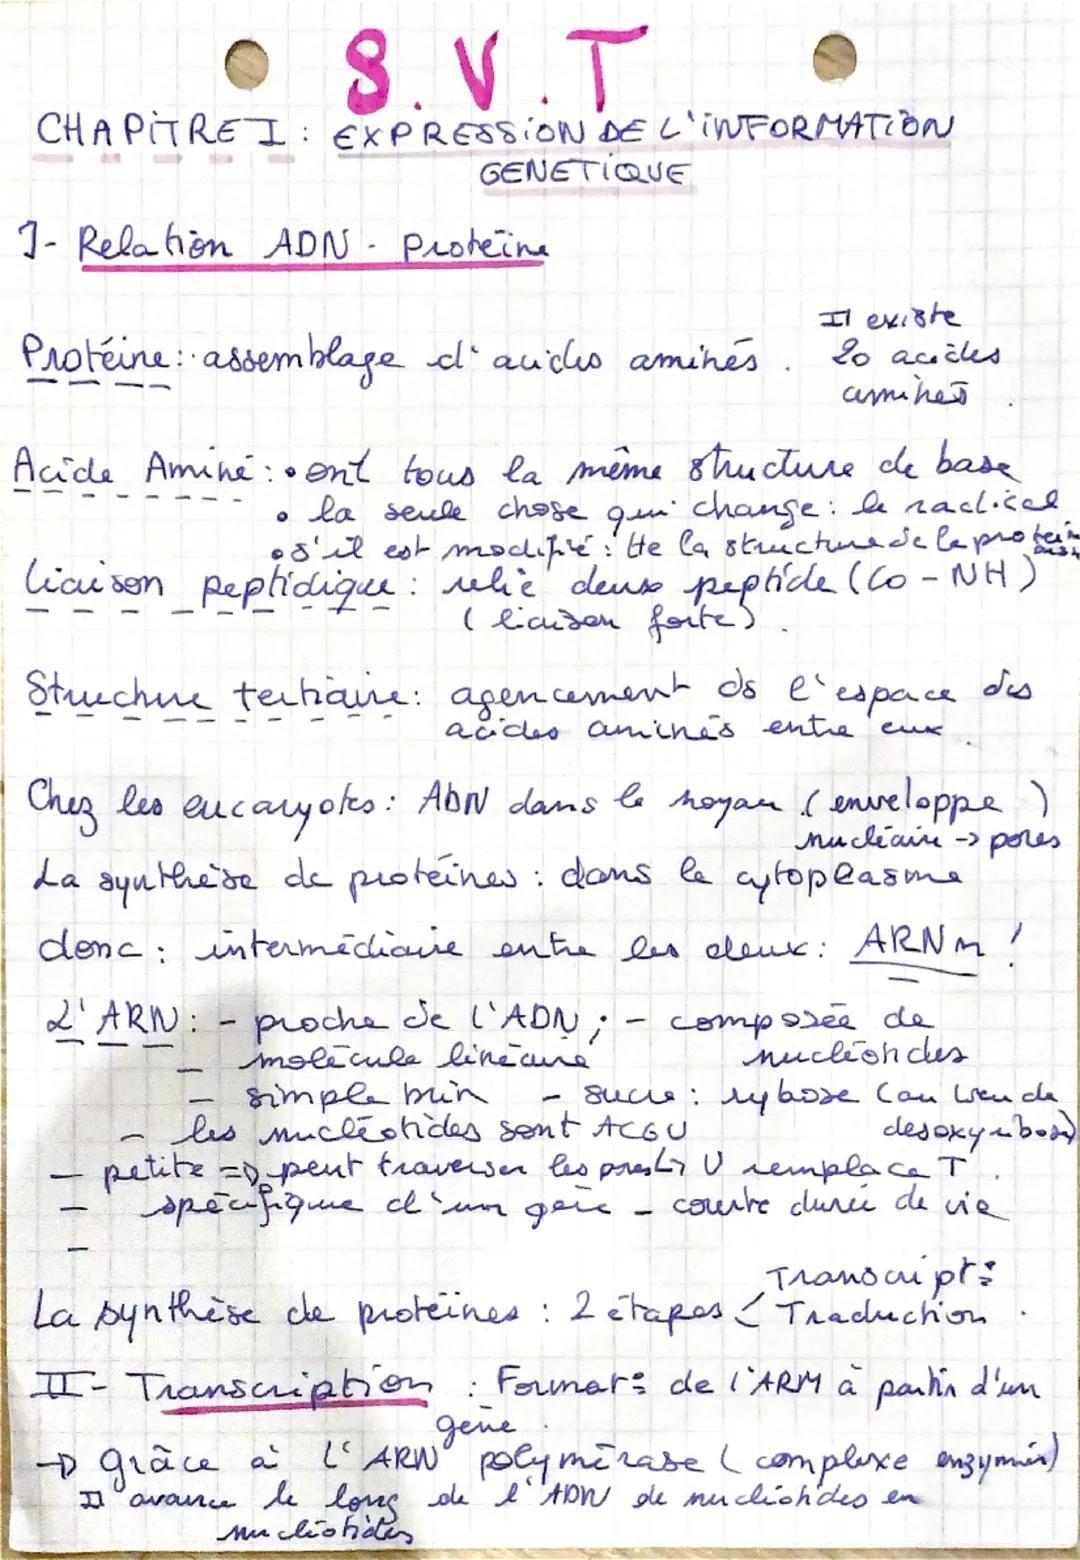 S.V.T
CHAPITRE I : EXPRESSION DE L'INFORMATION
GENETIQUE
I- Relation ADN - Protéine
Protéine : assemblage d'acides aminés . Il existe
20 acides
aminés .
Acide Aminé : • ont tous la même structure de base
• la seule chose qui change : le radical
• s'il est modifié : tte la structure de la protéine
aussi
liaison peptidique : relie deux peptide (CO - NH)
(liaison forte) .
Structure tertiaire : agencement ds l'espace des
acides aminés entre eux .
Chez les eucaryotes : ADN dans le noyau (enveloppe )
nucléaire -> pores
La synthèse de protéines : dans le cytoplasme
donc : intermédiaire entre les deux : ARNm !
L'ARN : - proche de l'ADN ; - composée de
- molécule linéaire nucléotides
- simple brin - sucre : rybose (au lieu de
- les nucléotides sont ACGU desoxyribose)
- petite => peut traverser les pores U remplace T .
- spécifique d'un gène - courte durée de vie
-
La synthèse de protéines : 2 étapes < Transcript°
Traduction .
II- Transcription : Format° de l'ARM à partir d'un
gène .
-> grâce à l'ARN polymérase (complexe enzymie)
Il avance le long de l'ADN de nucléotides en
nucléotides